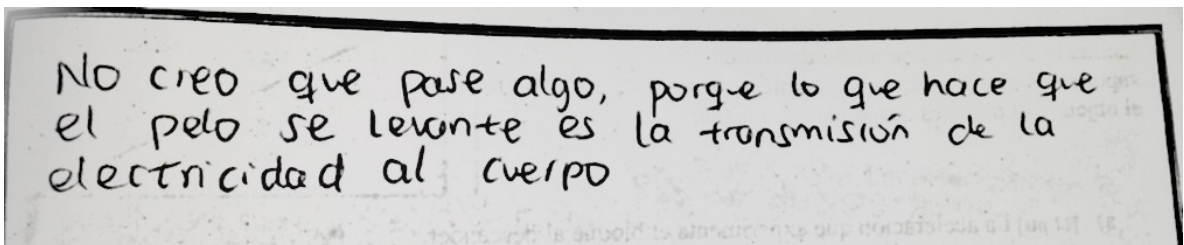 No creo que pase algo, porque lo que hace que
el pelo se levante es la transmisión de la
electricidad al cuerpo